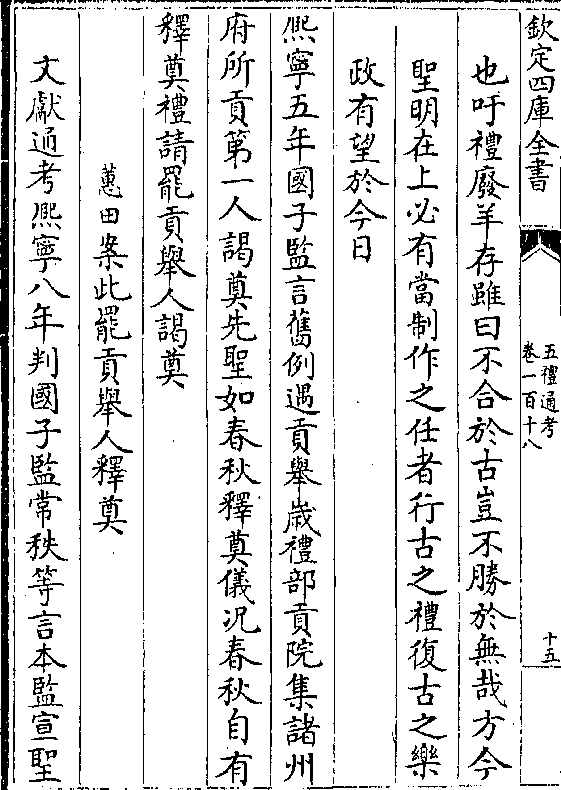 欽定四庫全書
五禮通考
卷一百十八
十五
也吁禮廢羊存雖曰不合於古豈不勝於無哉方今
聖明在上必有當制作之任者行古之禮復古之樂
政有望於今日
熙寧五年國子監言舊例遇貢舉歲禮部貢院集諸州
府所貢第一人謁奠先聖如春秋釋奠儀况春秋自有
釋奠禮請罷貢舉人謁奠
蕙田案此罷貢舉人釋奠
文獻通考熙寧八年判國子監常秩等言本監宣聖